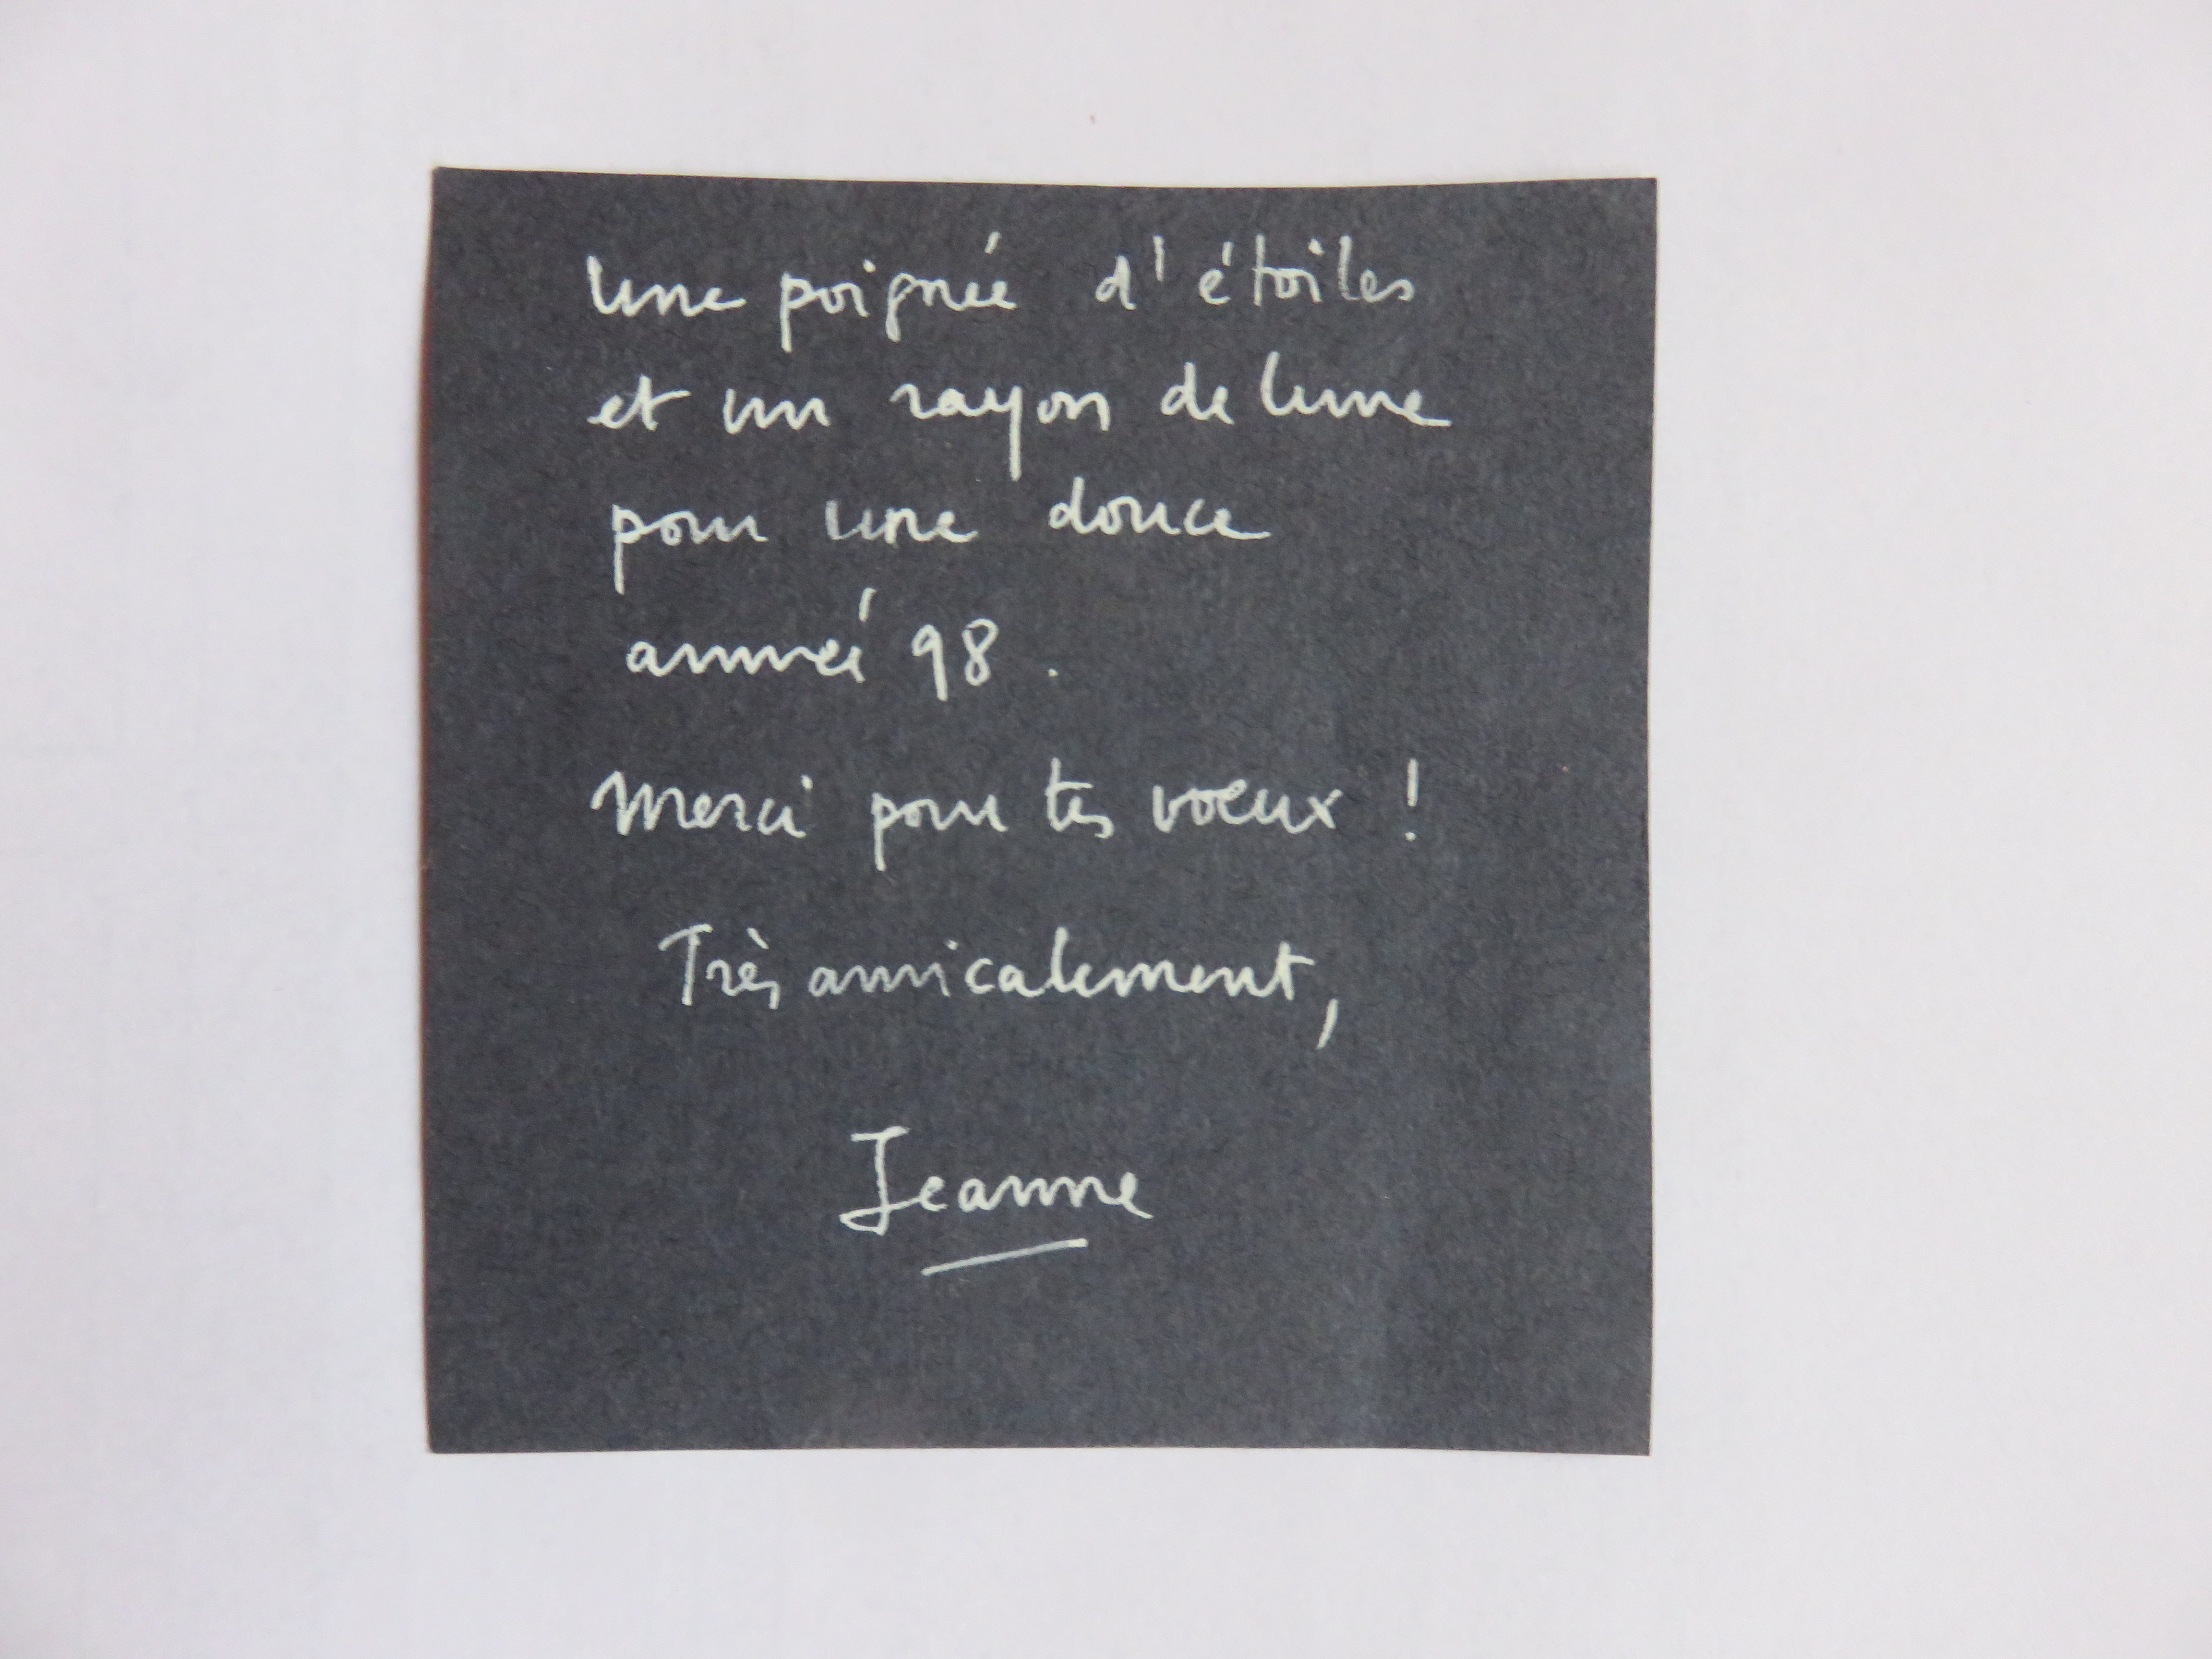 Une poignée d'étoiles
et un rayon de lune
pour une douce
année 98.
Merci pour tes voeux !
Très amicalement,
Jeanne